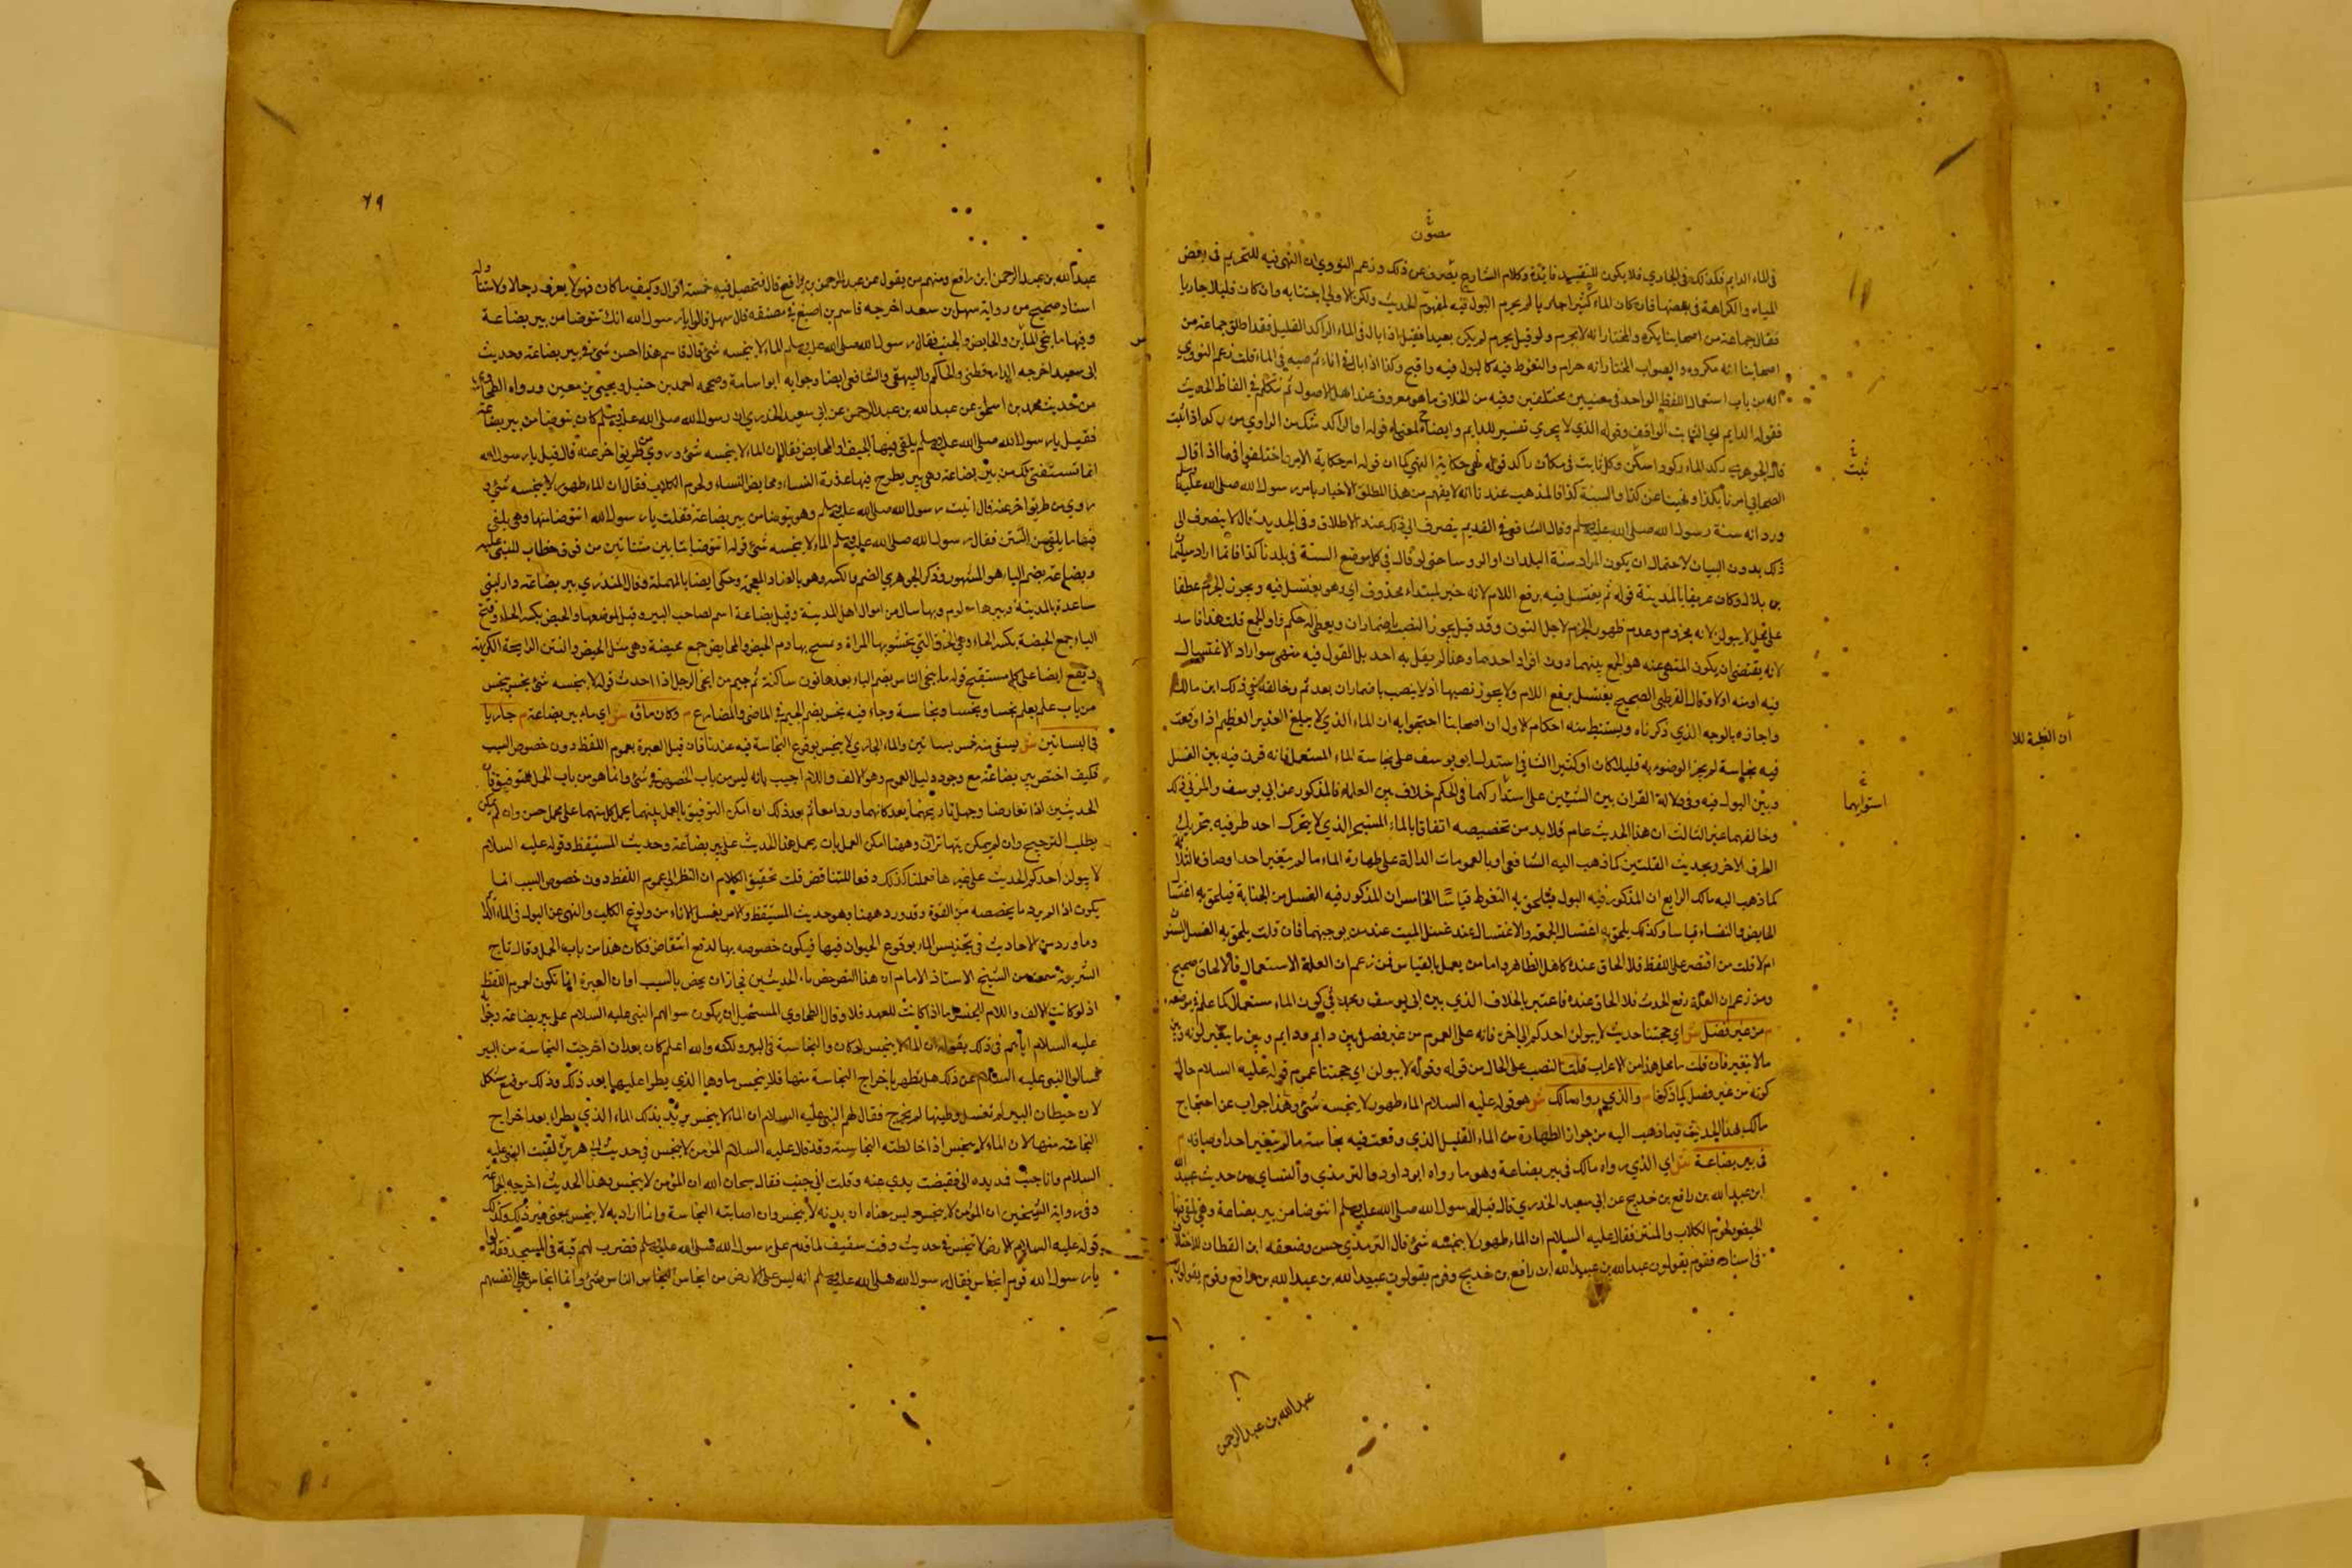 مصون
في الماء الدايم فكذلك في الجاري فلا يكون للتقييد فايدة وكلام الشارع يصرف عن ذلك وزعم النووي ان النهي فيه للتحريم في بعض
المياه والكراهة في بعضها فان كان الماء كثيرا جاريا لم يحرم البول فيه لمفهوم الحديث ولكن الاولى اجتنابه وان كان قليلا جاريا
فقال جماعة من اصحابنا يكره والمختار انه لا يحرم ولو قيل يحرم لم يكن بعيدا فقيل اذا بال في الماء الراكد القليل فقد اطلق جماعة من
اصحابنا انه مكروه والصواب المختار انه حرام والتغوط فيه كالبول فيه واقبح وكذا اذا بال في اناء ثم صبه في الماء قلت زعم النووي
انه من باب استعمال اللفظ الواحد في معنيين مختلفين وفيه من الخلاف ما هو معروف عند اهل الاصول ثم نتكلم في الفاظ الحديث
فقوله الدايم اي الثابت الواقف وقوله الذي لا يجري تفسير للدايم وايضاح لمعناه قوله او الراكد شك من الراوي من ركد اذا ثبت
قال الجوهري ركد الماء ركودا سكن وكل ثابت في مكان راكد قوله نهي حكاية النهي كما ان قوله امر حكاية الامر اختلفوا فيما اذا قال
ثبت
الصحابي امرنا بكذا ونهينا عن كذا والسنة كذا فالمذهب عندنا انه لا يفهم من هذا المطلق الاخبار بامر رسول الله صلى الله عليه وسلم
ورد انه سنة رسول الله صلى الله عليه وسلم وقال الشافعي في القديم ينصرف الى ذلك عند الاطلاق وفي الجديد قال لا ينصرف الى
ذلك بدون البيان لاحتمال ان يكون المراد سنة البلدان او الروسا حتى لو قال في كل موضع السنة في بلدنا كذا فانما اراد سليمان
بن بلال وكان عريفا بالمدينة قوله ثم يغتسل فيه برفع اللام لانه خبر لمبتداء محذوف اي وهو يغتسل فيه ويجوز الجزم عطفا
على محل لا يبولن لانه مجزوم وعدم ظهور الجزم لاجل النون وقد قيل يجوز النصب باضمار ان ويعطى له حكم واو الجمع قلت هذا فاسد
لانه يقتضي ان يكون المنهي عنه هو الجمع بينهما دون افراد احدهما وهذا لم يقل به احد بل القول فيه منهي سوا اراد الاغتسال
فيه او منه اولا وقال القرطبي الصحيح يغتسل برفع اللام ولا يجوز نصبها اذ لا ينصب باضمار ان بعد ثم وخالفه في ذلك ابن مالك
واجازه بالوجه الذي ذكرناه ويستنبط منه احكام الاول ان اصحابنا احتجوا به ان الماء الذي لا يبلغ الغدير العظيم اذا وقعت
فيه نجاسة لم يجز الوضوء به قليلا كان او كثيرا الثاني استدل ابو يوسف على نجاسة الماء المستعمل فانه قرن فيه بين الغسل
وبين البول فيه وفي دلالة القران بين الشيئين على اشتراكهما في الحكم خلاف بين العلماء فالمذكور عن ابي يوسف والمزني ذلك
استوايهما
وخالفهما غيرهما الثالث ان هذا الحديث عام فلا بد من تخصيصه اتفاقا بالماء المستبحر الذي لا يتحرك احد طرفيه بتحريك
الطرف الاخر وبحديث القلتين كما ذهب اليه الشافعي او بالعمومات الدالة على طهارة الماء ما لم يتغير احد اوصافه الثلاثة
كما ذهب اليه مالك الرابع ان المذكور فيه البول فيلحق به التغوط قياسا الخامس ان المذكور فيه الغسل من الجنابة فيلحق به اغتسال
الحايض والنفساء قياسا وكذلك يلحق به اغتسال الجمعة والاغتسال عند غسل الميت عند من يوجبهما فان قلت يلحق به الغسل المسنون
ام لا قلت من اقتصر على اللفظ فلا الحاق عنده كاهل الظاهر واما من يعمل بالقياس فمن زعم ان العلة الاستعمال فالالحاق صحيح
ومن زعم ان العلة رفع الحدث فلا الحاق عنده فاعتبر بالخلاف الذي بين ابي يوسف ومحمد في كون الماء مستعملا كما علم في موضعه
م من غير فصل ش اي حجتنا حديث لا يبولن احدكم الى اخره فانه على العموم من غير فصل بين دايم ودايم وبين ما يتغير لونه وبين
ما لا يتغير فان قلت ما محل هذا من الاعراب قلت النصب على الحال من قوله وقوله لا يبولن اي حجتنا عموم قوله عليه السلام حال
كونه من غير فصل كما ذكرنا م والذي رواه مالك ش هو قوله عليه السلام الماء طهور لا ينجسه شيء وهذا جواب عن احتجاج
مالك بهذا الحديث فيما ذهب اليه من جواز الطهارة من الماء القليل الذي وقعت فيه نجاسة ما لم يتغير احد اوصافه م
في بير بضاعة ش اي الذي رواه مالك في بير بضاعة وهو ما رواه ابو داود والترمذي والنساي من حديث عبيد الله
ابن عبد الله بن رافع بن خديج عن ابي سعيد الخدري قال قيل لرسول الله صلى الله عليه وسلم انتوضا من بير بضاعة وهي يلقى فيها
الحيض ولحوم الكلاب والنتن فقال عليه السلام ان الماء طهور لا ينجسه شيء قال الترمذي حسن وضعفه ابن القطان للاختلاف
في اسناده فقوم يقولون عبد الله بن عبيد الله ابن رافع بن خديج وقوم يقولون عبيد الله بن عبد الله بن رافع وقوم يقولون
عبد الله بن عبد الرحمن
٦٩
عبد الله بن عبد الرحمن ابن رافع ومنهم من يقول عن عبد الرحمن بن رافع قال فتحصل فيه خمسة اقوال وكيف ما كان فهو لا يعرف رجالا ولا
اسناد صحيح من رواية سهل بن سعد اخرجه قاسم بن اصبغ في مصنفه قال سهل قالوا يا رسول الله انك تتوضا من بير بضاعة
وفيها ما ينجي الناس والحايض والجنب فقال رسول الله صلى الله عليه وسلم الماء لا ينجسه شيء قال قاسم هذا احسن شيء في بير بضاعة وحديث
ابي سعيد اخرجه الدارقطني والحاكم والبيهقي والشافعي ايضا وجوابه ابو اسامة وصححه احمد بن حنبل ويحيى بن معين ورواه الطحاوي
من حديث محمد بن اسحق عن عبد الله بن عبد الرحمن عن ابي سعيد الخدري ان رسول الله صلى الله عليه وسلم كان يتوضا من بير بضاعة
فقيل يا رسول الله صلى الله عليه وسلم يلقى فيها الجيف والمحايض فقال ان الماء لا ينجسه شيء وروي من طريق اخر عنه قال قيل يا رسول الله
انما تستقي لك من بير بضاعة وهي بير يطرح فيها عذرة النساء ومحايض النساء ولحوم الكلاب فقال ان الماء طهور لا ينجسه شيء و
روي من طريق اخر عنه قال اتيت رسول الله صلى الله عليه وسلم وهو يتوضا من بير بضاعة فقلت يا رسول الله اتتوضا منها وهي يلقى
فيها ما يلقى من النتن فقال رسول الله صلى الله عليه وسلم الماء لا ينجسه شيء قوله اتتوضا بتاءين مثناتين من فوق خطاب للنبي عليه
وبضاعة بضم الباء هو المشهور وذكر الجوهري الضم والكسر وهو بالضاد المعجمة وحكي ايضا بالمهملة وقال المنذري بير بضاعة دار لبني
ساعدة بالمدينة وبيرها معلوم وبها مال من اموال اهل المدينة وقيل بضاعة اسم لصاحب البير وقيل لموضعها والحيض بكسر الحاء وفتح
الياء جمع الحيضة بكسر الحاء وهي الخرقة التي تحتشو بها المراة وتمسح بها دم الحيض والمحايض جمع محيضة وهي مثل الحيض والنتن الرايحة الكريهة
ويقع ايضا على كل مستقبح قوله ما ينجي الناس بضم الياء بعدها نون ساكنة ثم جيم من انجى الرجل اذا احدث قوله لا ينجسه شيء نجس ينجس
من باب علم يعلم نجسا ونجسا ونجاسة وجاء فيه نجس بضم الجيم في الماضي والمضارع م وكان ماؤه ش اي ماء بير بضاعة م جاريا
في البساتين ش يسقى منه خمس بساتين والماء الجاري لا ينجس بوقوع النجاسة فيه عندنا فان قيل العبرة بعموم اللفظ دون خصوص السبب
فكيف اختص ببير بضاعة مع وجود دليل العموم وهو الالف واللام اجيب بانه ليس من باب الخصوص في شيء وانما هو من باب الحمل للتوفيق فان
الحديثين اذا تعارضا وجهل تاريخهما بعد كانهما وردا معا ثم بعد ذلك ان امكن التوفيق بالعمل بينهما يحمل كل منهما على محمل حسن وان لم يمكن
يطلب الترجيح وان لم يمكن يتهاتران وههنا امكن العمل بان يحمل هذا الحديث على بير بضاعة وحديث المستيقظ وقوله عليه السلام
لا يبولن احدكم الحديث على غيرها فعملنا كذلك دفعا للتناقض قلت تحقيق الكلام ان النظر الى عموم اللفظ دون خصوص السبب انما
يكون اذا لم يرد ما يخصصه من القوة وقد ورد ههنا وهو حديث المستيقظ والامر بغسل الاناء من ولوغ الكلب والنهي عن البول في الماء الراكد
وما ورد من الاحاديث في تنجيس الماء بوقوع الحيوان فيها فيكون خصوصه بها لدفع انتقاض فكان هذا من باب الحمل وقال تاج
الشريعة سمعت من الشيخ الاستاذ الامام ان هذا النص خص بماء الحديثين فجاز ان يخص بالسبب او ان العبرة انما تكون لعموم اللفظ
اذ لو كانت الالف واللام للجنس اما اذا كانت للعهد فلا وقال الطحاوي المستحيل ان يكون سوالهم النبي عليه السلام على بير بضاعة وجوابه
عليه السلام اياهم في ذلك بقوله ان الماء لا ينجس لو كان والنجاسة في البير ولكنه والله اعلم كان بعد ان اخرجت النجاسة من البير
فسالوا النبي عليه السلام عن ذلك هل تطهر باخراج النجاسة منها فلا ينجس ماوها الذي يطرا عليها بعد ذلك وذلك موضع مشكل
لان حيطان البير لم تغسل وطينها لم يخرج فقال لهم النبي عليه السلام ان الماء لا ينجس يريد بذلك الماء الذي يطراء بعد اخراج
النجاسة منها لا ان الماء لا ينجس اذا خالطته النجاسة وقد قال عليه السلام المؤمن لا ينجس في حديث ابي هريرة لقيت النبي عليه
السلام وانا جنب فمد يده الي فقبضت يدي عنه وقلت اني جنب فقال سبحان الله ان المؤمن لا ينجس وهذا الحديث اخرجه الجماعة
وفي رواية الشيخين ان المؤمن لا ينجس ليس معناه ان بدنه لا ينجس وان اصابته النجاسة وانما اراد به لا ينجس بمعنى غير ذلك وكذلك
قوله عليه السلام الارض لا تنجس في حديث وفد ثقيف لما قدم على رسول الله صلى الله عليه وسلم فضرب لهم قبة في المسجد فقالوا
يا رسول الله قوم انجاس فقال رسول الله صلى الله عليه وسلم انه ليس على الارض من انجاس الناس شيء وانما انجاس الناس على انفسهم